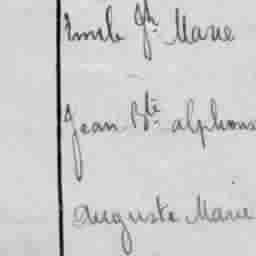 Emile Jh Marie
Jean Bte alphons
Auguste Marie